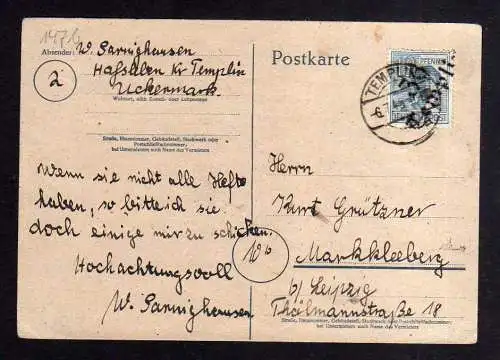 147b
Absender: W. Sarnighausen
Haßleben Kr Templin
Uckermark
Wohnort, auch Zustell- oder Leitpostamt
2
Straße, Hausnummer, Gebäudeteil, Stockwerk oder
Postschließfachnummer;
bei Untermietern auch Name des Vermieters
Wenn sie nicht alle Hefte
haben, so bitte ich sie
doch einige mir zu schicken.
Hochachtungsvoll
W. Sarnighausen
Postkarte
PFENNIG
TEMPLIN
POST
Herrn
Kurt Grützner
Markkleeberg
10b
b/ Leipzig
Thälmannstraße 18
Straße, Hausnummer, Gebäudeteil, Stockwerk oder Postschließfachnummer;
bei Untermietern auch Name des Vermieters